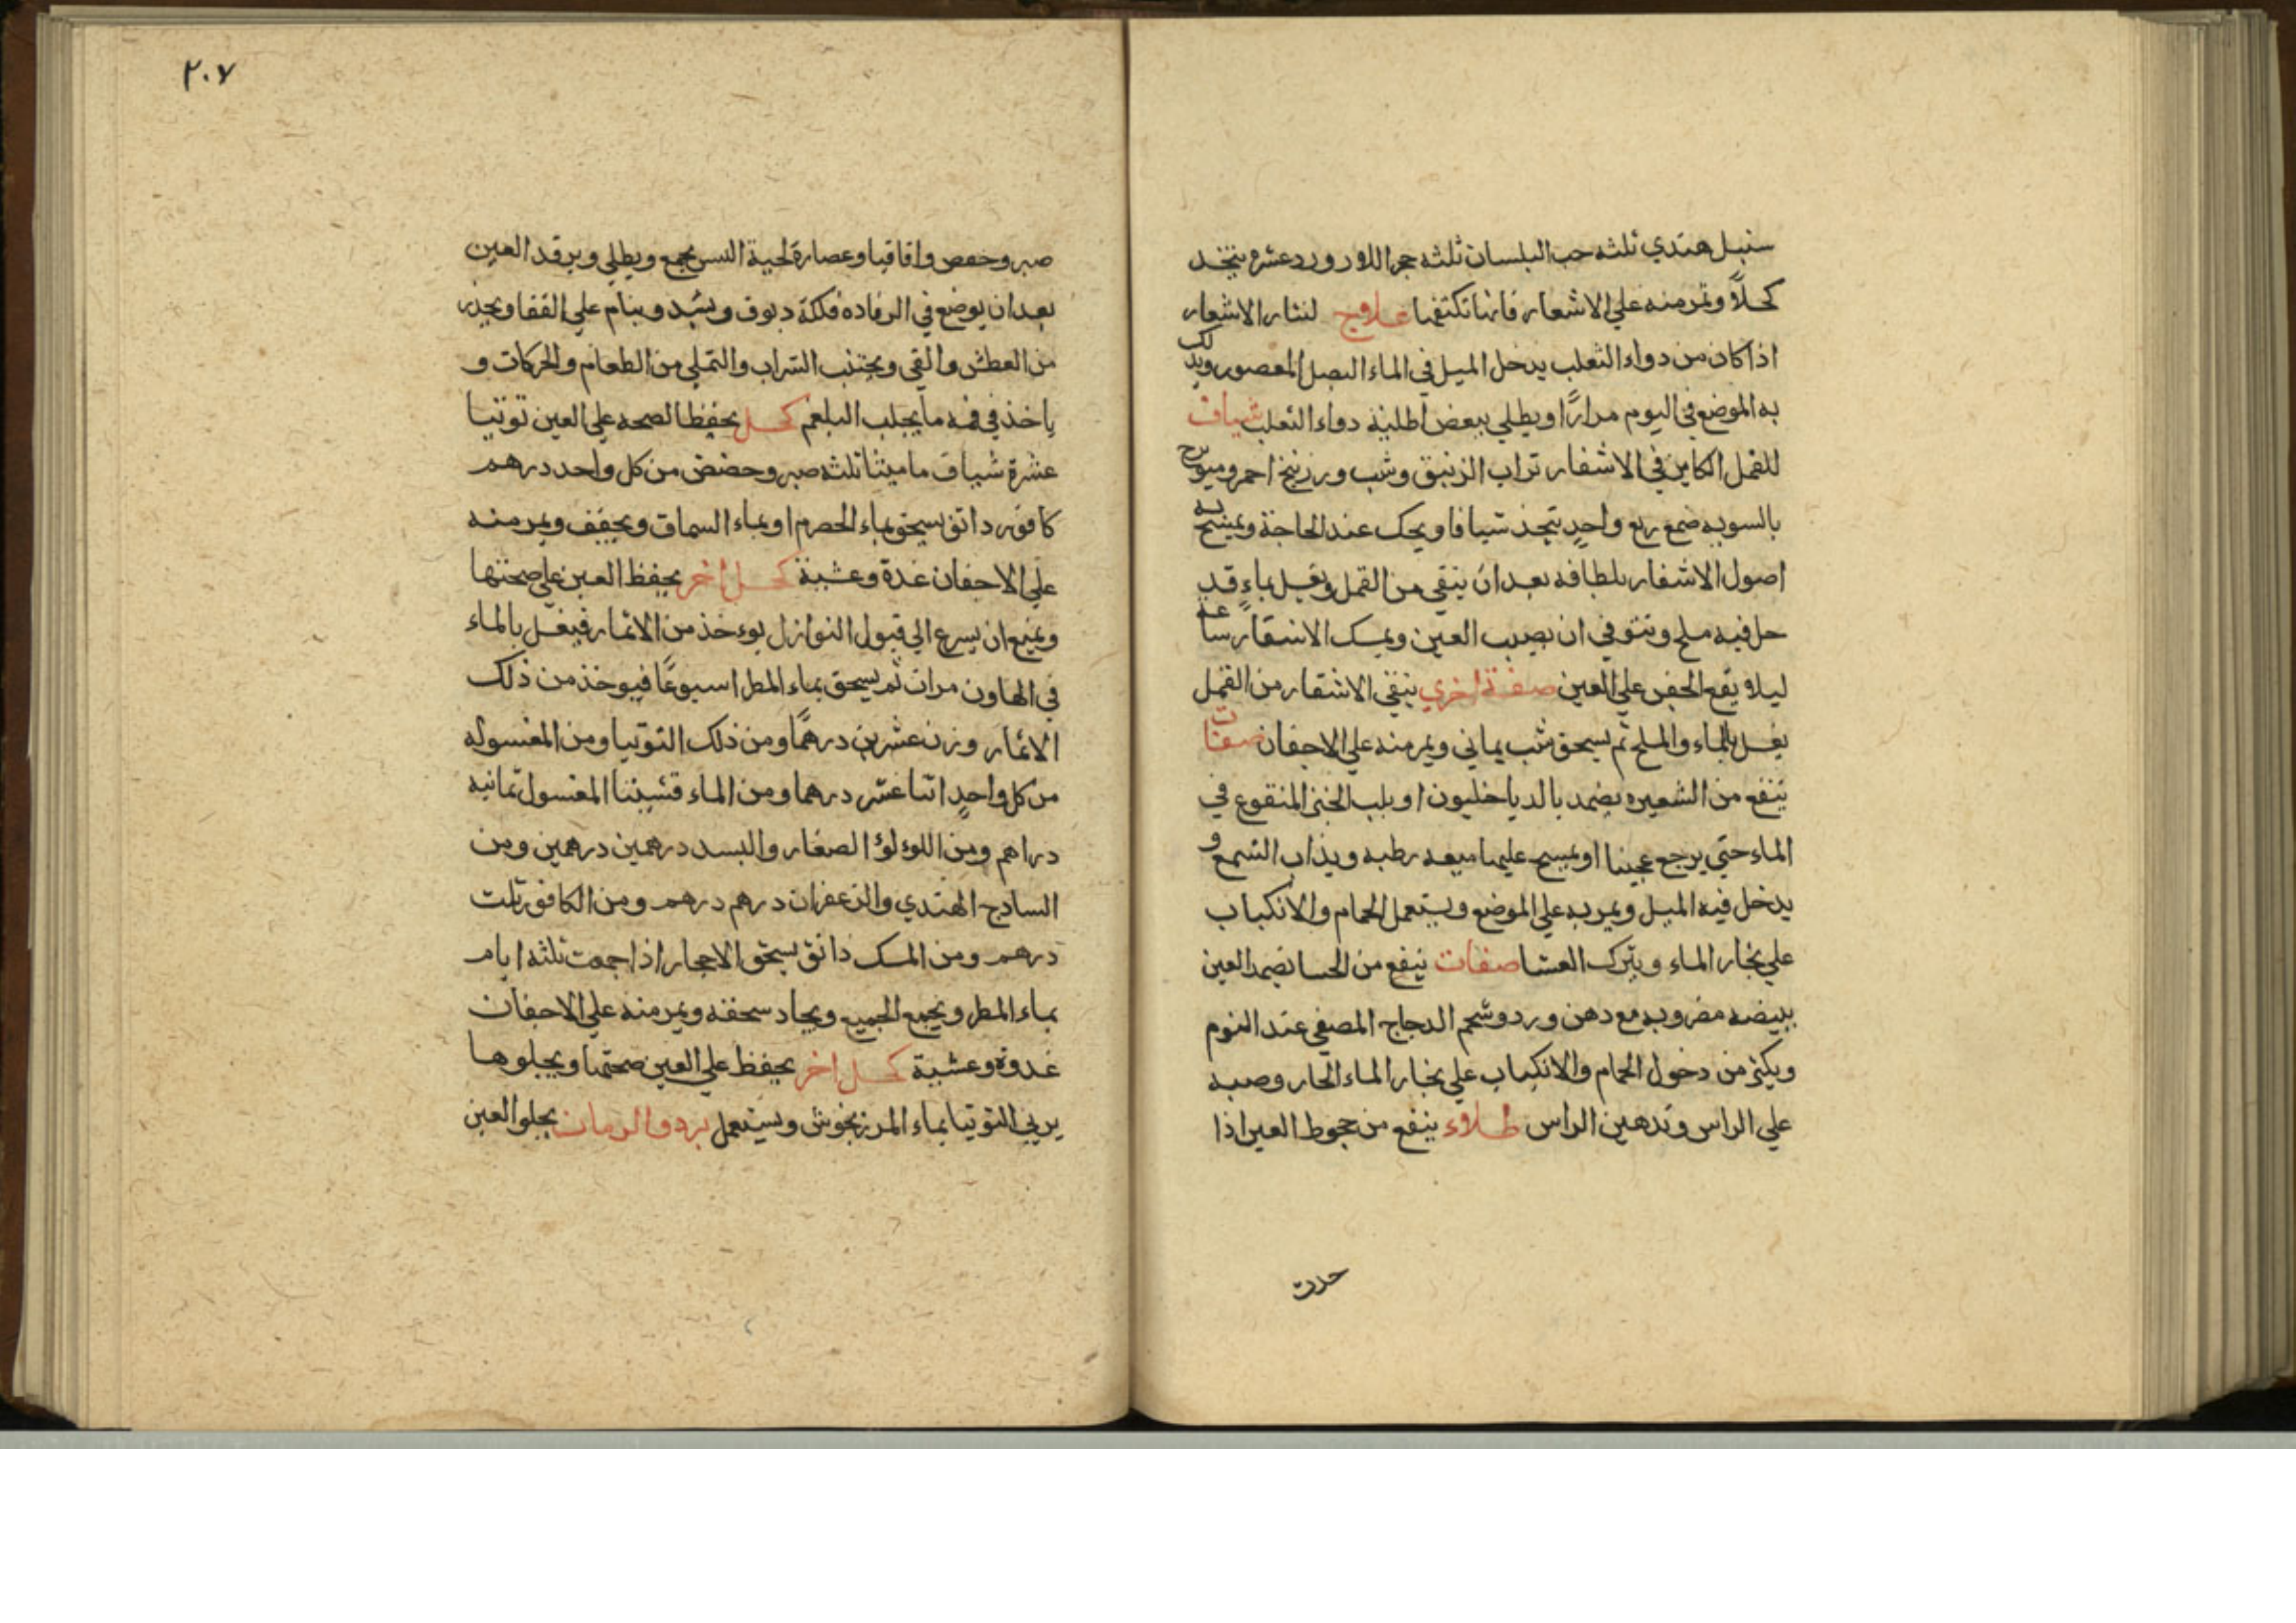 سنبل هندي ثلثه حب البلسان ثلثه حجر اللاورورد عشره يتخذ
كحلاً وتمر منه علي الاشعار فانها تكتفها علاوج لنثار الاشعار
اذا كان من دواء الثعلب يدخل الميل في الماء البصل المعصور ويدلك
به الموضع في اليوم مرارًا او يطلي ببعض اطلية دواء الثعلب شياف
للقمل الكاين في الاشفار تراب الزنبق وشب وزرنيخ احمر وميوبزح
بالسويه صمغ ربع واحدٍ يتجذ شيافا ويحك عند الحاجة ويمسح به
اصول الاشفار بلطافه بعد ان ينقي من القمل ويغسل بماءٍ قد
حل فيه ملح وتتوفي ان يصيب العين ويمسك الاشقار ساعة
ليلا يقع الجفن علي العين صفة اخري ينقي الاشقار من القمل
يغسل بالماء والملح ثم يسحق شب يماني ويمر منه علي الاجفان صفات
ينفع من الشعيره يضمد بالدياخليون او بلب الخبز المنقوع في
الماء حتي يرجع عجينا او يمسح عليها ميعه رطبه ويذاب الشمع و
يدخل فيه الميل ويمر به علي الموضع ويستعمل الحمام والانكباب
علي بخار الماء ويترك العشا صفات ينفع من الحسا تضمد العين
ببيضه مضروبه مع دهن ورد وشحم الدجاج المصفي عند النوم
ويكثر من دخول الحمام والانكباب علي بخار الماء الحار وصبه
علي الراس وتدهين الراس طلاوء ينفع من حجوط العين اذا
حدرت
٢٠٧
صبر وحصص واقاقيا وعصارة لحية التيس يجمع ويطلي ويرقد العين
بعد ان يوضع في الرفاده فلكة دبوق ويشد وينام علي القفا ويحذر
من العطش والقي ويجتنب الشراب والتملي من الطعام والحركات و
ياخذ في فمه ما يجلب البلغم كحل يحفظ الصحه علي العين توتيا
عشرة شياف ماميثا ثلثه صبر وحضض من كل واحد درهم
كافور دانق يسحق بماء الحصرم او بماء السماق ويجفف ويمر منه
علي الاجفان غدة وعشية كحل اخر يحفظ العين علي صحتها
ويمنع ان يسرع الي قبول النوازل يوءخذ من الاثمار فيغسل بالماء
في الهاون مرات ثم يسحق بماء المطر اسبوعًا فيوخذ من ذلك
الاثمار وزن عشرين درهمًا ومن ذلك التوتيا ومن المغسوله
من كل واحدٍ اثنا عشر درهما ومن الماء قشيننا المغسول ثمانيه
دراهم ومن اللوءلوء الصغار والبسد درهمين درهمين ومن
السادج الهندي والزعفران درهم درهم ومن الكافور ثلث
درهم ومن المسك دانق يسحق الاحجار اذا جمعت ثلثه ايام
بماء المطر ويجمع الجميع ويجاد سحقه ويمر منه علي الاجفان
غدوة وعشية كحل اخر يحفظ علي العين صحتها ويجلوها
يربي التوتيا بماء المرزنجوش ويستعمل برد والرمان يجلو العين